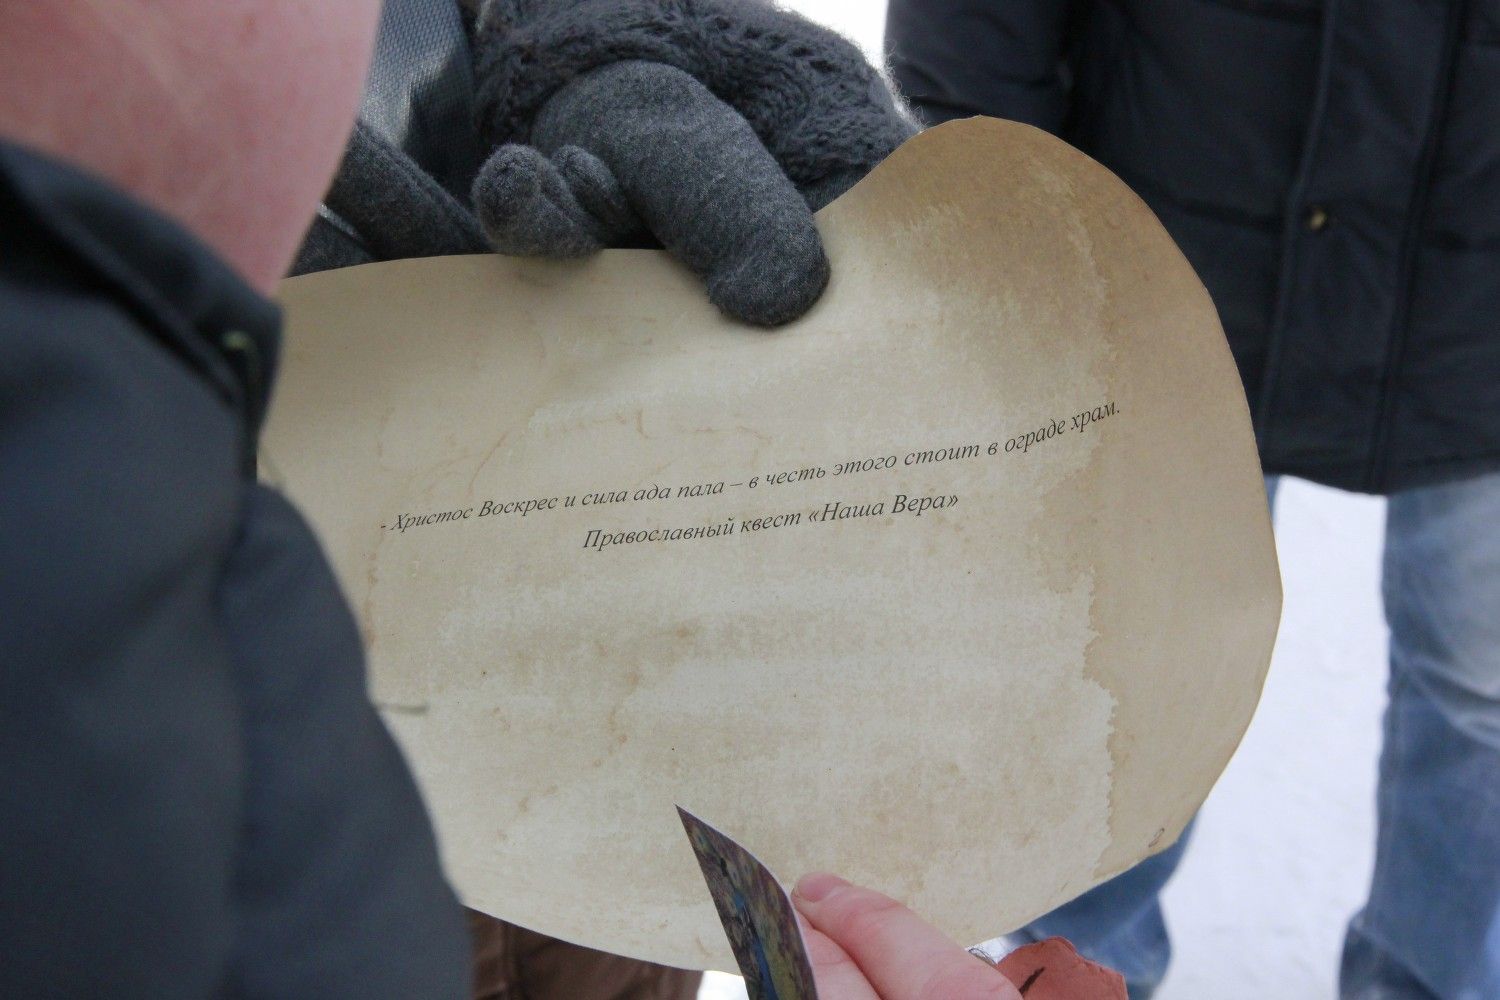 - Христос Воскрес и сила ада пала – в честь этого стоит в ограде храм.
Православный квест «Наша Вера»
2